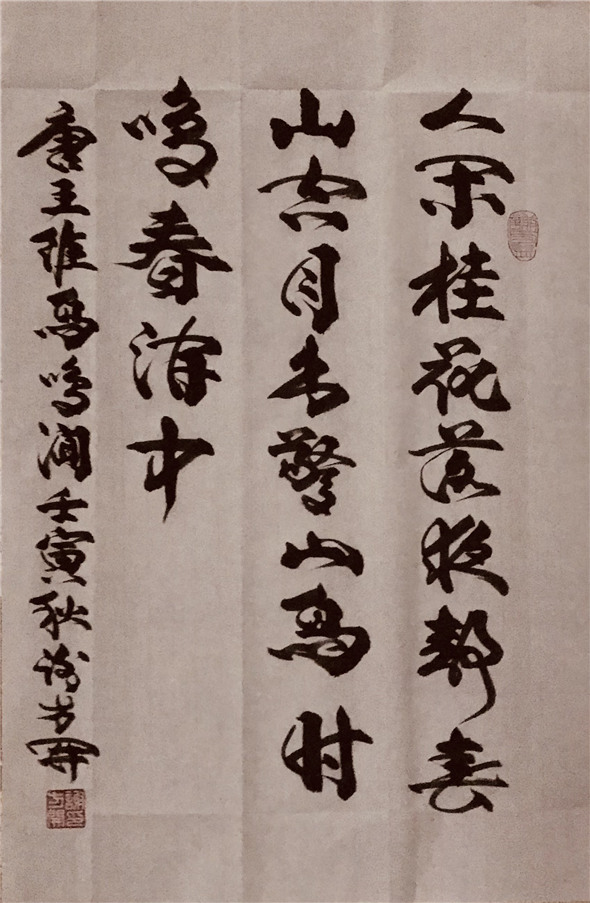 人闲桂花落夜静春
山空月出驚山鳥时
鳴春澗中
唐王維鳥鳴澗壬寅秋谢方開